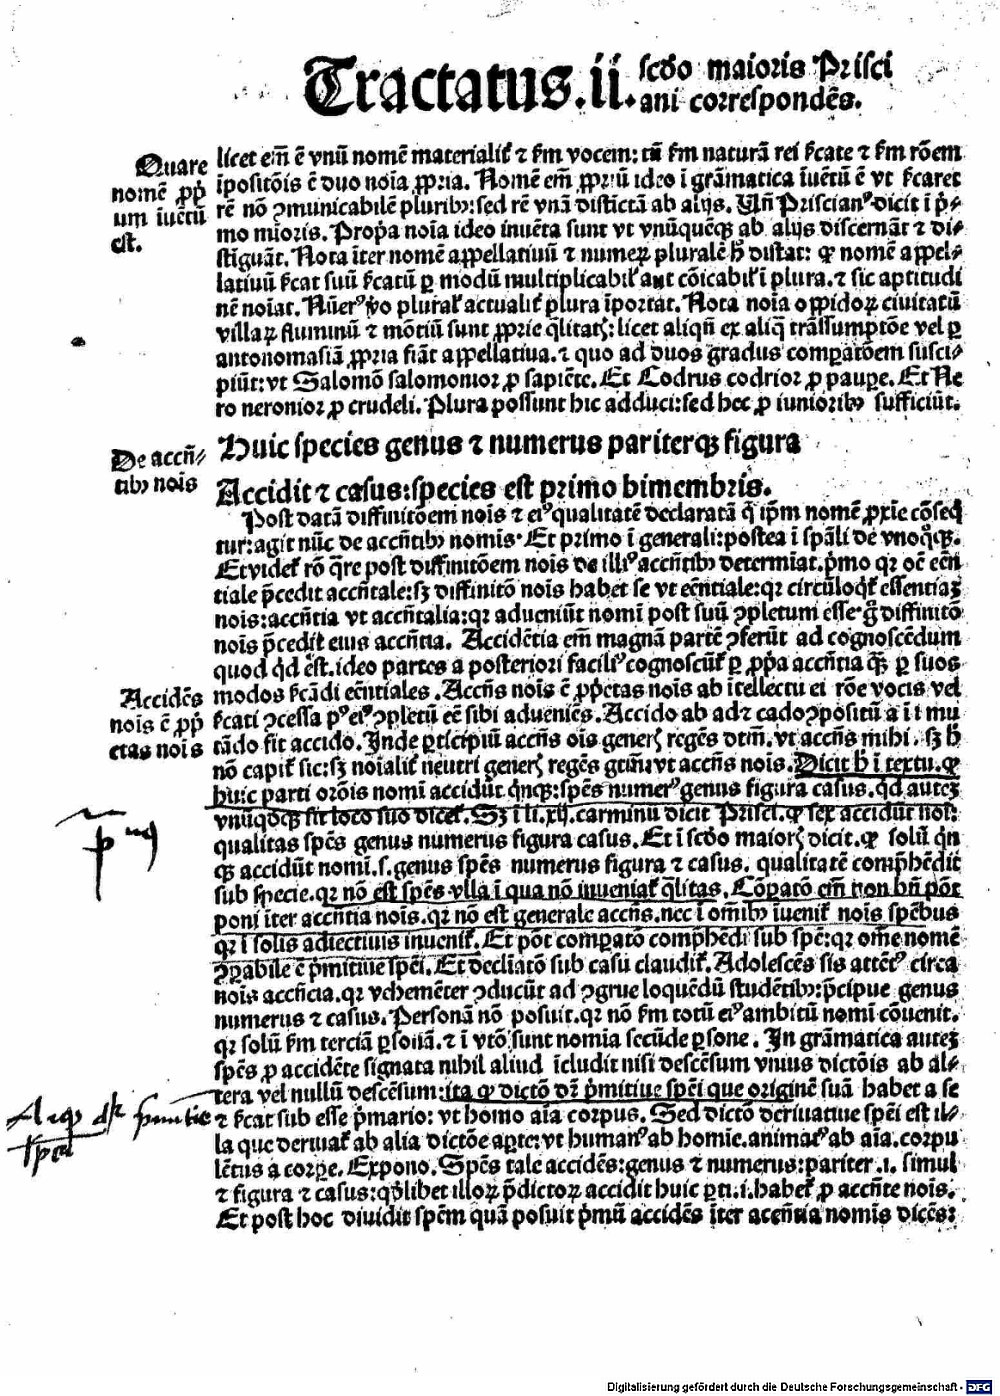 Tractatus.ii. scdo maioris Prisci
ani correspondēs.
Quare
nomē ꝓp̄
um iuētū
est.
licet em̄ ē vnū nomē materialiť ⁊ ẜm vocem: tn̄ ẜm naturā rei ẜcate ⁊ ẜm rōem
īpositōis ē duo noīa ꝓpria. Nomē em̄ ꝓpriū ideo ī grāmatica īuētū ē vt ẜcaret
rē nō ꝯmunicabilē pluribꝰ: sed rē vnā distictā ab alijs. Vn̄ Priscianꝰ dicit ī p̄-
mo mīoris. Propa noīa ideo inuēta sunt vt vnūquēqꝫ ab alijs discernāt ⁊ di-
stiguāt. Nota īter nomē appellatiuū ⁊ numeꝝ pluralē h̄ distat: ꝙ nomē appel-
latiuū ẜcat suū ẜcatū ꝑ modū multiplicabiꝉ aut cōicabiꝉ ī plura. ⁊ sic aptitudi
nē noīat. Nūerꝰ ꝟo pluraꝉ actualiť plura īportat. Nota noīa oppidoꝝ ciuitatū
villaꝝ fluminū ⁊ mōtiū sunt ꝓprie q̄litatꝭ: licet aliqn̄ ex aliq̄ trāssumptōe vel ꝑ
antonomasiā ꝓpria fiāt appellatiua. ⁊ quo ad duos gradus comꝑatōem susci-
piūt: vt Salomō salomonior ꝓ sapiēte. Et Codrus codrior ꝓ pauꝑe. Et Ne
ro neronior ꝓ crudeli. Plura possunt hic adduci: sed hec ꝓ iunioribꝰ sufficiūt.
De accn̄-
tibꝰ nois
Huic species genus ⁊ numerus pariterqꝫ figura
Accidit ⁊ casus: species est primo bimembris.
Post datā diffinitōem nois ⁊ eiꝰ qualitatē declaratā q̄ ip̄m nomē ꝓxie cōseq̄
tur: agit nūc de accn̄tibꝰ nomis. Et primo ī generali: postea ī spāli de vnoq̊qꝫ.
Et videť rō q̄re post diffinitōem nois de illiꝰ accn̄tibꝰ determīat. p̄mo qꝛ oē eēn
tiale p̄cedit accn̄tale: sꝫ diffinitō nois habet se vt eēntiale: qꝛ circūloq̄ť essentiaꝫ
nois: accn̄tia vt accn̄talia: qꝛ adueniūt nomī post suū ꝯpletum esse. gͦ diffinitō
nois p̄cedit eius accn̄tia. Accidētia em̄ magnā partē ꝯferūt ad cognoscēdum
quod qd̄ est. ideo partes a posteriori faciliꝰ cognoscūť ꝑ ꝓp̄a accn̄tia q̄ꝫ ꝑ suos
Accidēs
nois ē ꝓp̄
etas nois
modos ẜcādi eēntiales. Accn̄s nois ē ꝓp̄etas nois ab ītellectu ei rōe vocis vel
ẜcati ꝯcessa pꝰ eiꝰ ꝯpletū eē sibi adueniēs. Accido ab ad ⁊ cado ꝯpositū a ī i mu
tādo fit accido. Inde ꝑticipiū accn̄s oīs generꝭ regēs dtm̄. vt accn̄s mihi. sꝫ h̄
nō capiť sic: sꝫ noīaliť neutri generꝭ regēs gtm̄: vt accn̄s nois. Dicit h̄ ī textu. ꝙ
huic parti orōis nomī accidūt qn̄qꝫ: spēs numerꝰ genus figura casus. qd̄ auteꝫ
vnūqdqꝫ sit loco suo diceť. Sꝫ ī li. xij. carminū dicit Prisci. ꝙ sex accidūt noī:
qualitas spēs genus numerus figura casus. Et ī scdo maiorꝭ dicit. ꝙ solū qn̄
qꝫ accidūt nomi. s. genus spēs numerus figura ⁊ casus. qualitatē comp̄hēdit
sub specie. qꝛ nō est spēs vlla ī qua nō inueniať q̄litas. Cōꝑatō em̄ non bn̄ pōt
poni īter accn̄tia nois. qꝛ nō est generale accn̄s. nec ī omībꝰ īueniť nois spēbus
qꝛ ī solis adiectiuis inueniť. Et pōt comꝑatō comp̄hēdi sub spē: qꝛ om̄e nomē
ꝯꝑabile ē p̄mitiue spēi. Et decliatō sub casu claudiť. Adolescēs sis attētꝰ circa
nois accn̄cia. qꝛ vehemēter ꝯducūt ad ꝯgrue loquēdū studētibꝰ: p̄cipue genus
numerus ⁊ casus. Personā nō posuit. qꝛ nō ẜm totū eiꝰ ambitū nomī cōuenit.
qꝛ solū ẜm terciā ꝑsonā. ⁊ ī vtō sunt nomīa secūde ꝑsone. In grāmatica auteꝫ
spēs ꝓ accidēte signata nihil aliud īcludit nisi descēsum vnius dictōis ab al-
tera vel nullū descēsum: ita ꝙ dictō dr̄ p̄mitiue spēi que originē suā habet a se
⁊ ẜcat sub esse p̄mario: vt homo aīa corpus. Sed dictō deriuatiue spēi est il-
la que deriuať ab alia dictōe aꝑte: vt humanꝰ ab homīe. animatꝰ ab aīa. corpu
lētus a corꝑe. Expono. Spēs tale accidēs: genus ⁊ numerus: pariter .i. simul
⁊ figura ⁊ casus: qd̄libet illoꝝ p̄dictoꝝ accidit huic ꝑti .i. habeť ꝓ accn̄te nois.
Et post hoc diuidit spēm quā posuit p̄mū accidēs īter accn̄tia nomīs dicēs:
Digitalisierung gefördert durch die Deutsche Forschungsgemeinschaft - DFG